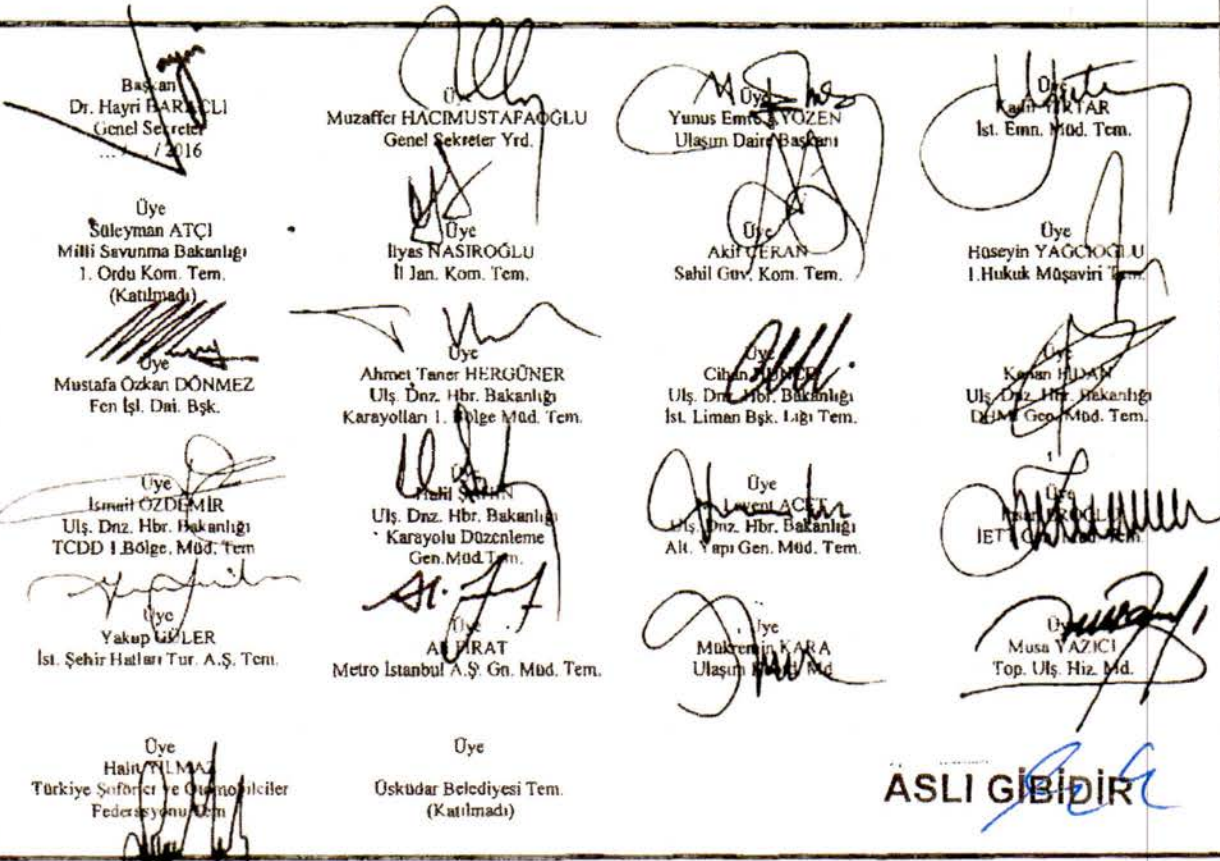 Başkan
Dr. Hayri BARAÇLI
Genel Sekreter
... / ... / 2016
Üye
Muzaffer HACIMUSTAFAOĞLU
Genel Sekreter Yrd.
Üye
Yunus Emre AYÖZEN
Ulaşım Daire Başkanı
Üye
Kadir
İst. Emn. Müd. Tem.
Üye
Süleyman ATÇI
Milli Savunma Bakanlığı
1. Ordu Kom. Tem.
(Katılmadı)
Üye
İlyas NASIROĞLU
İl Jan. Kom. Tem.
Üye
Akif CERAN
Sahil Güv. Kom. Tem.
Üye
Hüseyin YAĞCIOĞLU
1.Hukuk Müşaviri Tem.
Üye
Mustafa Özkan DÖNMEZ
Fen İşl. Dai. Bşk.
Üye
Ahmet Taner HERGÜNER
Ulş. Dnz. Hbr. Bakanlığı
Karayolları 1. Bölge Müd. Tem.
Üye
Cihan
Ulş. Dnz. Hbr. Bakanlığı
İst. Liman Bşk. Lığı Tem.
Üye
Kenan FİDAN
Ulş. Dnz. Hbr. Bakanlığı
DHMİ Gen. Müd. Tem.
Üye
İsmail ÖZDEMİR
Ulş. Dnz. Hbr. Bakanlığı
TCDD 1.Bölge. Müd. Tem
Üye
Halil
Ulş. Dnz. Hbr. Bakanlığı
Karayolu Düzenleme
Gen.Müd.Tem.
Üye
Levent ACET
Ulş. Dnz. Hbr. Bakanlığı
Alt. Yapı Gen. Müd. Tem.
Üye
İETT Gen. Müd. Tem.
Üye
Yakup GÜLER
İst. Şehir Hatları Tur. A.Ş. Tem.
Üye
Ali FIRAT
Metro İstanbul A.Ş. Gn. Müd. Tem.
Üye
Mükremin KARA
Ulaşım Md
Üye
Musa YAZICI
Top. Ulş. Hiz. Md.
Üye
Halit YILMAZ
Türkiye Şoförler ve Otomobilciler
Federasyonu Tem
Üye
Üsküdar Belediyesi Tem.
(Katılmadı)
ASLI GİBİDİR